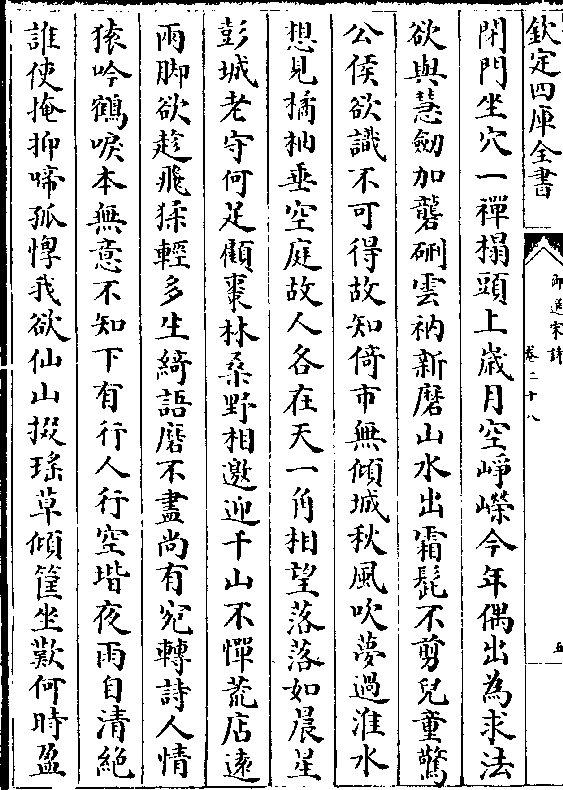 欽定四庫全書
御選宋詩
卷二十八
五
閉門坐穴一禪榻頭上歳月空崢嶸今年偶出為求法
欲與慧劒加礱硎雲衲新磨山水出霜髭不剪兒童驚
公侯欲識不可得故知倚市無傾城秋風吹夢過淮水
想見橘柚垂空庭故人各在天一角相望落落如晨星
彭城老守何足顧棗林桑野相邀迎千山不憚荒店逺
兩脚欲趁飛猱輕多生綺語磨不盡尚有宛轉詩人情
猿吟鶴唳本無意不知下有行人行空堦夜雨自清絶
誰使掩抑啼孤惸我欲仙山掇瑤草傾筐坐歎何時盈